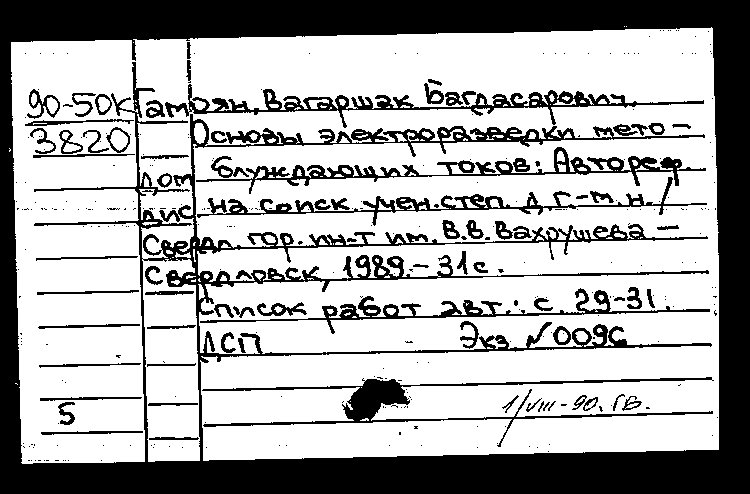 90-50к Гамоян, Вагаршак Багдасарович.
3820 Основы электроразведки мето-
дом блуждающих токов: Автореф
дис на соиск. учен. степ. д. г.-м. н. /
Свердл. гор. ин-т им. В.В. Вахрушева -
Свердловск, 1989. - 31 с.
Список работ авт.: с. 29-31.
ДСП Экз №0096
5
1/VIII-90. ГВ.